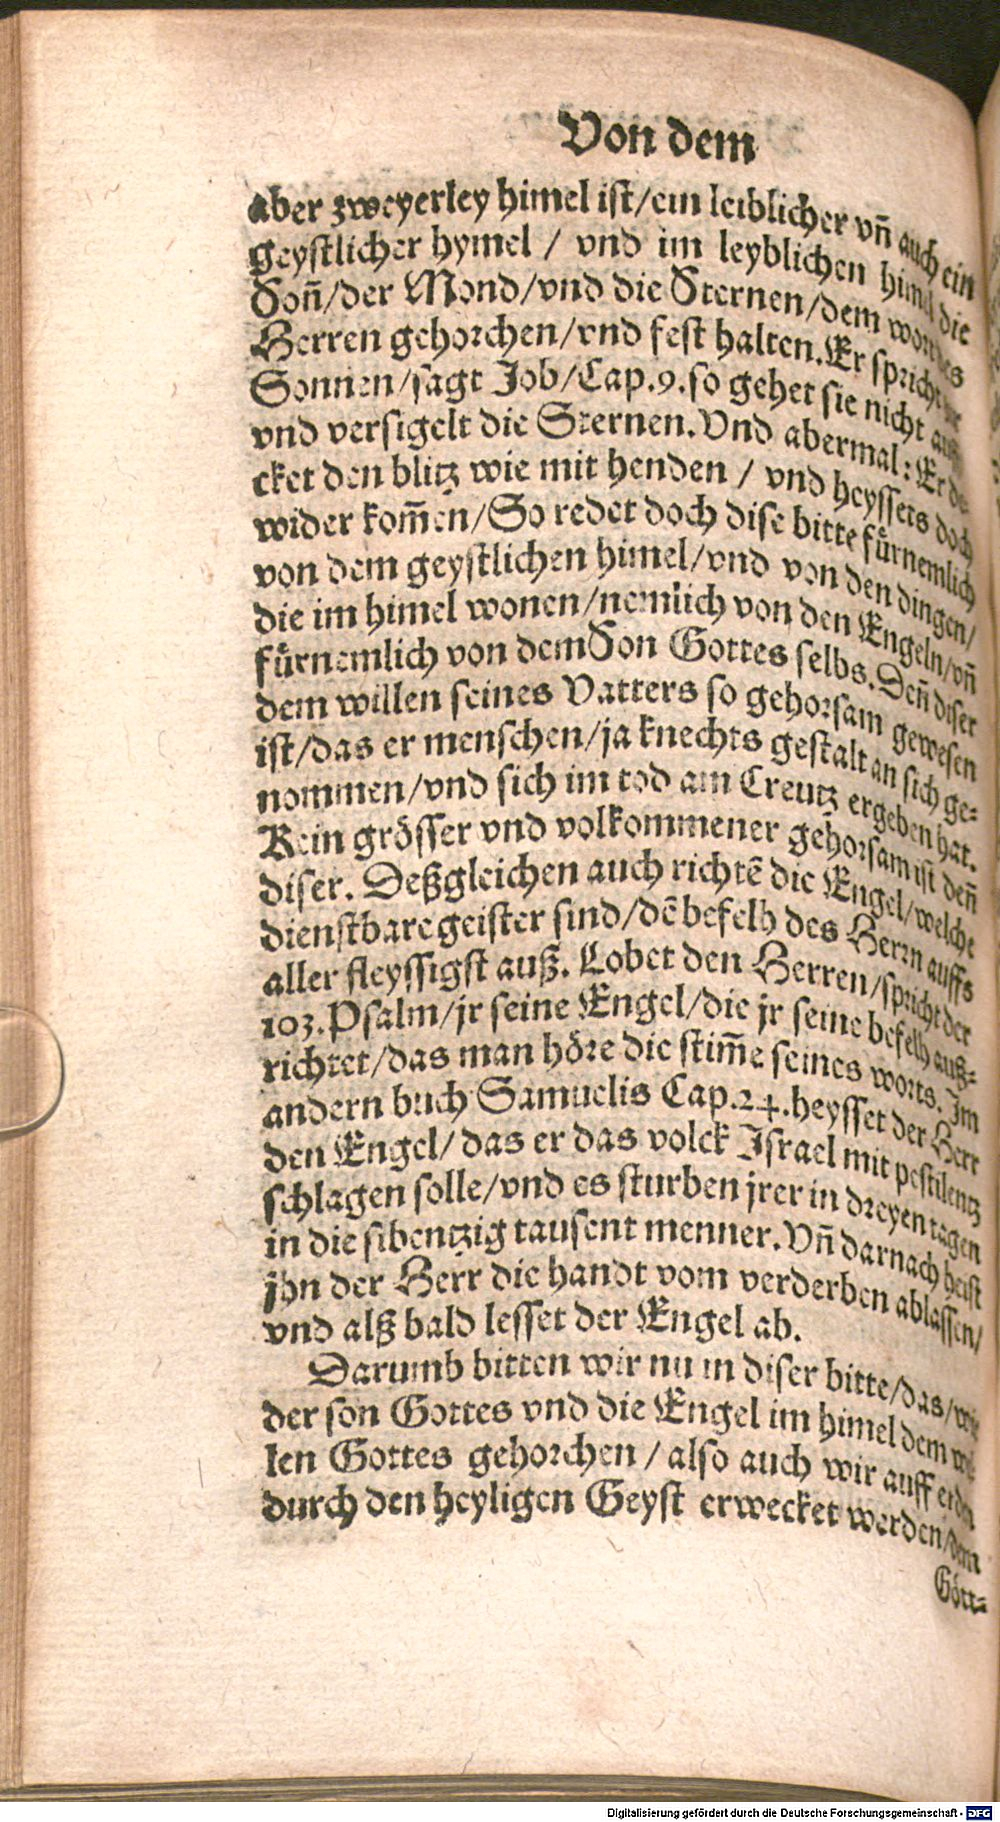 Von dem
aber zweyerley himel ist/ein leiblicher vn̄ auch ein
geystlicher hymel / vnd im leyblichen himel die
Son̄/der Mond/vnd die Sternen/dem wort des
Herren gehorchen/vnd fest halten. Er spricht zur
Sonnen/sagt Job/Cap.9. so gehet sie nicht auff
vnd versigelt die Sternen. Vnd abermal: Er de-
cket den blitz wie mit henden / vnd heyssets doch
wider kom̄en/So redet doch dise bitte fürnemlich
von dem geystlichen himel/vnd von den dingen/
die im himel wonen/nemlich von den Engeln/vn̄
fürnemlich von dem Son Gottes selbs. Den̄ diser
dem willen seines Vatters so gehorsam gewesen
ist/das er menschen/ja knechts gestalt an sich ge-
nommen/vnd sich im tod am Creutz ergeben hat.
Kein grösser vnd volkommener gehorsam ist den̄
diser. Deßgleichen auch richtē die Engel/welche
dienstbare geister sind/dē befelh des Herrn auffs
aller fleyssigst auß. Lobet den Herren/spricht der
103. Psalm/jr seine Engel/die jr seine befelh auß-
richtet/das man höre die stim̄e seines worts. Im
andern buch Samuelis Cap.24. heysset der Herr
den Engel/das er das volck Israel mit pestilentz
schlagen solle/vnd es sturben jrer in dreyen tagen
in die sibentzig tausent menner. Vn̄ darnach heist
jhn der Herr die handt vom verderben ablassen/
vnd alß bald lesset der Engel ab.
Darumb bitten wir nu in diser bitte/das/wie
der son Gottes vnd die Engel im himel dem wil-
len Gottes gehorchen / also auch wir auff erden
durch den heyligen Geyst erwecket werden/dem
Gött-
Digitalisierung gefördert durch die Deutsche Forschungsgemeinschaft - DFG